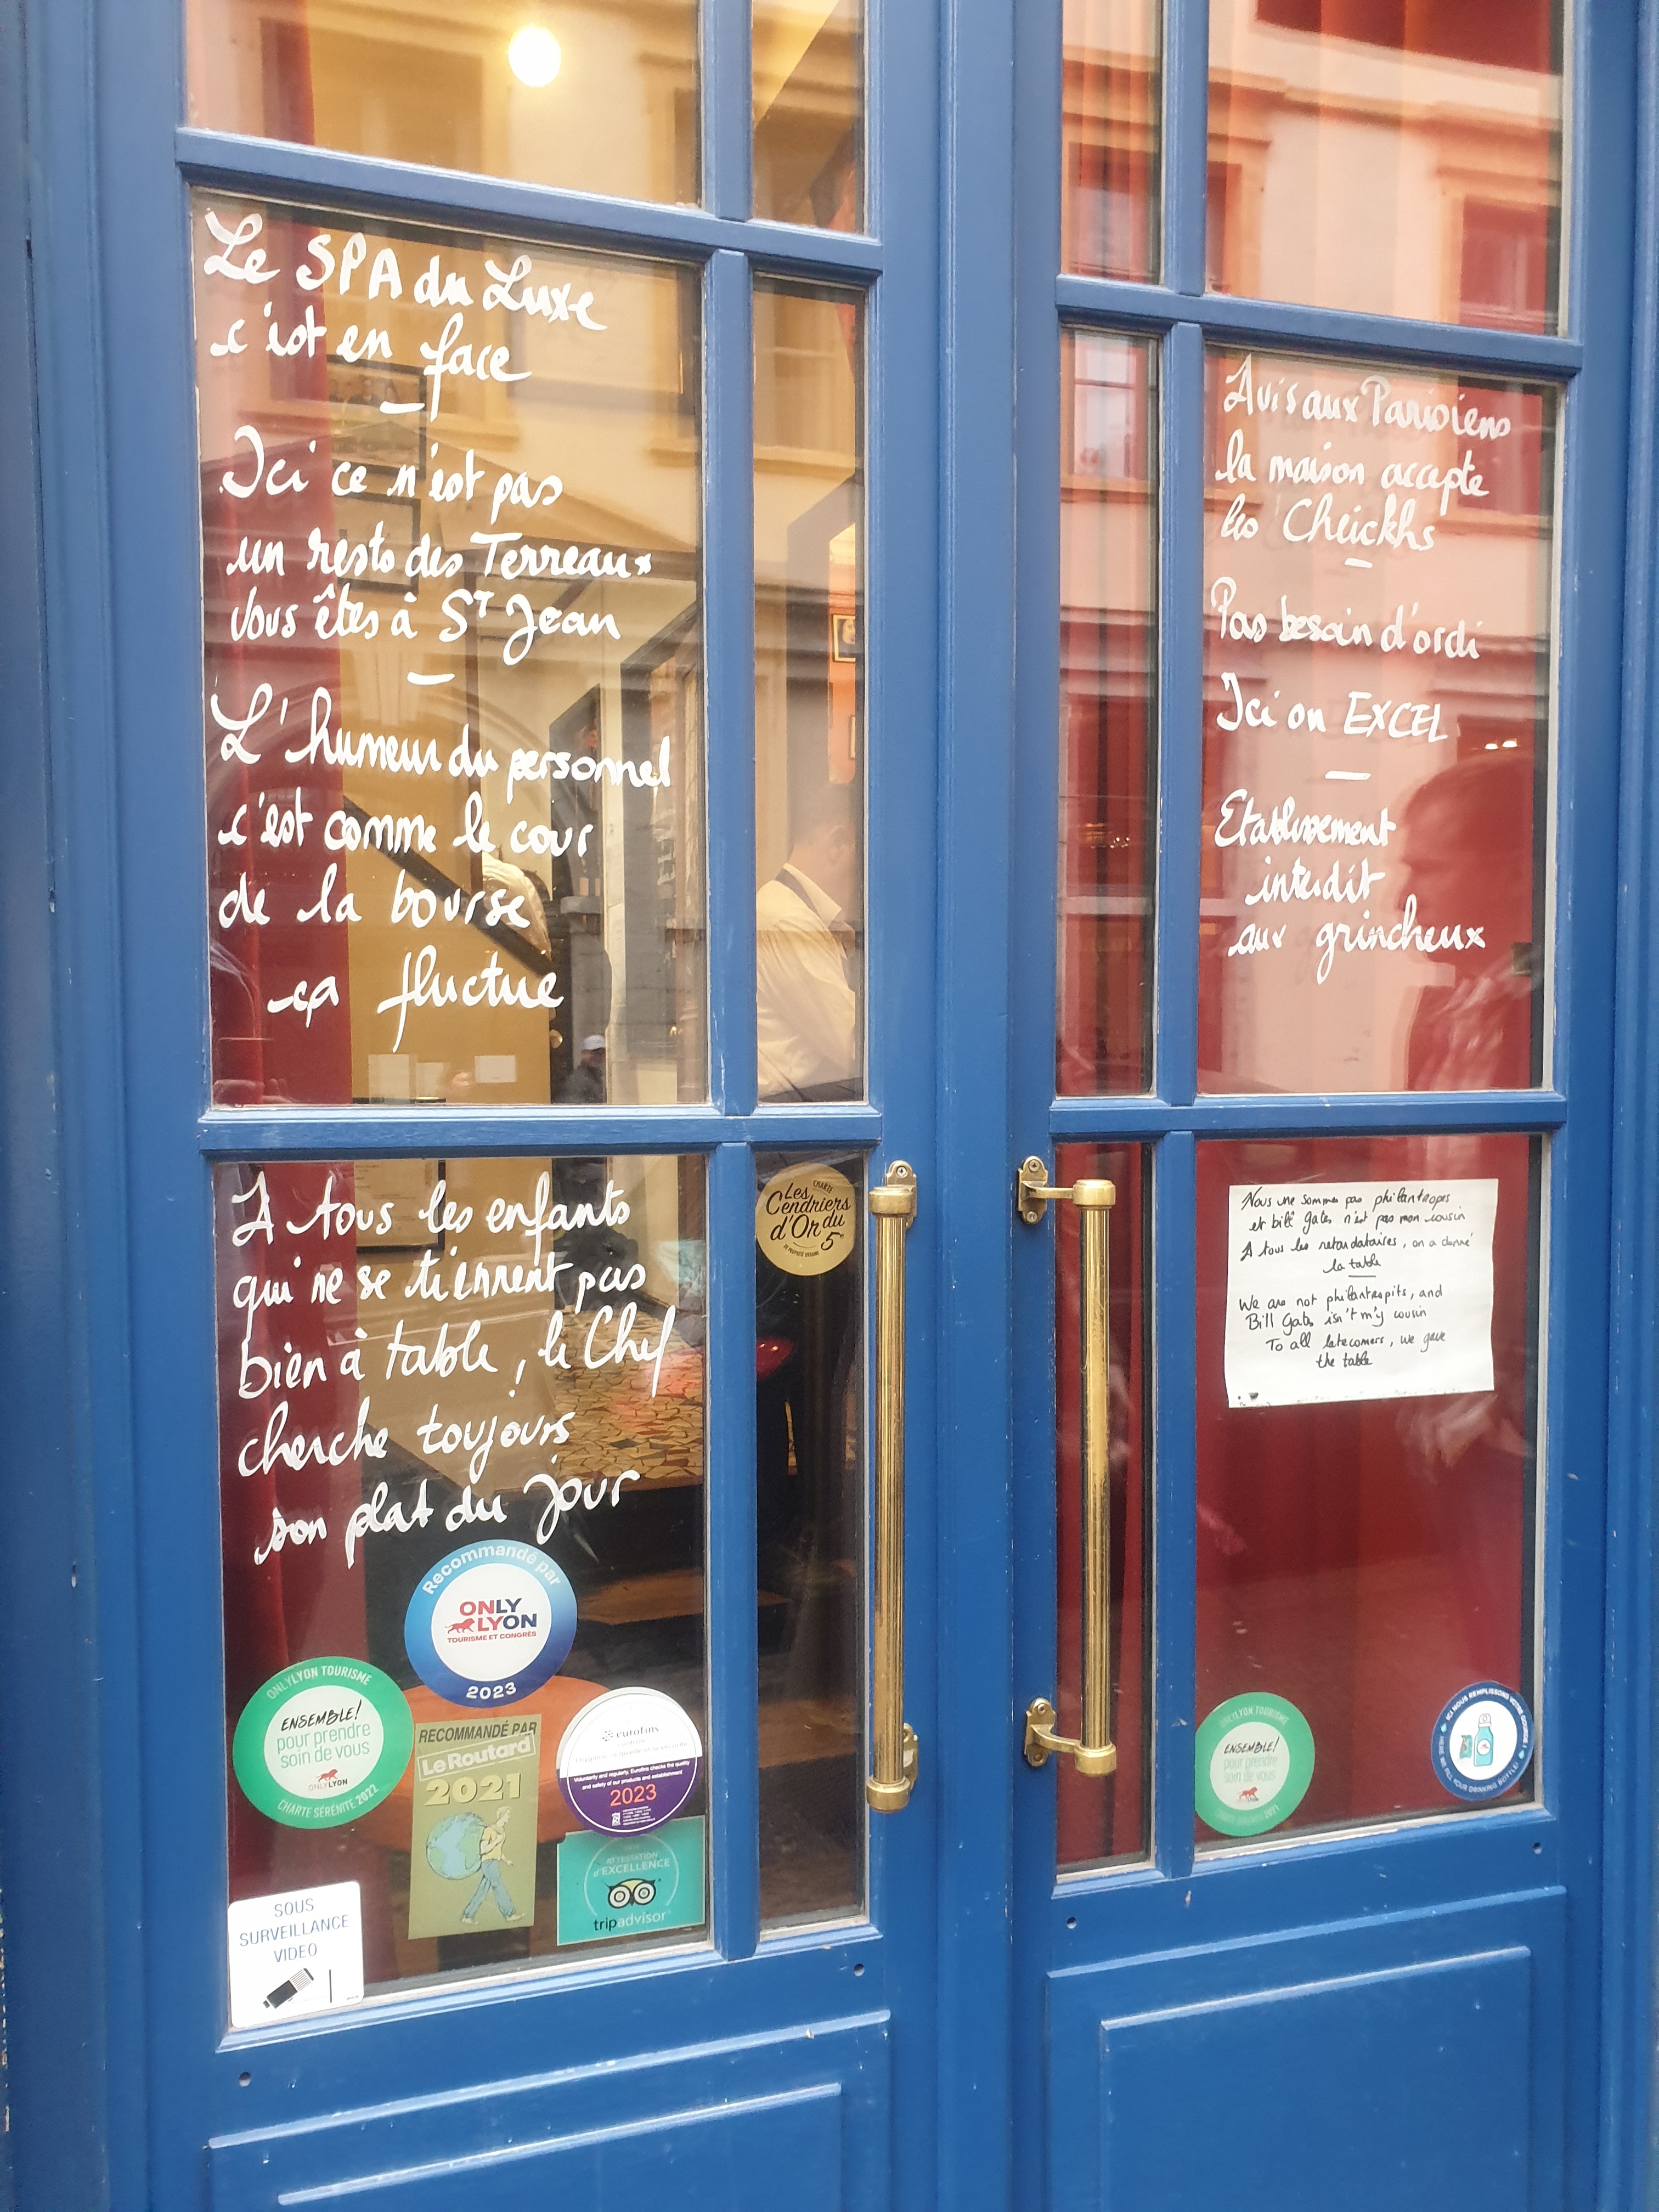 Le SPA du Luxe
c'est en face
Ici ce n'est pas
un resto des Terreaux
Vous êtes à ST Jean
L'humeur du personnel
c'est comme le cour
de la bourse
ça fluctue
A tous les enfants
qui ne se tiennent pas
bien à table, le Chef
cherche toujours
son plat du jour
Recommandé par
ONLY
LYON
TOURISME ET CONGRÈS
2023
ONLYLYON TOURISME
ENSEMBLE!
pour prendre
soin de vous
ONLYLYON
CHARTE SÉRÉNITÉ 2022
RECOMMANDÉ PAR
Le Routard
2021
eurofins
Voluntarily and regularly, Eurofins checks the quality
and safety of our products and establishment
2023
ATTESTATION
d'EXCELLENCE
tripadvisor
SOUS
SURVEILLANCE
VIDEO
CHARTE
Les
Cendriers
d'Or du
5e
DE PROPRETÉ URBAINE
Avis aux Parisiens
la maison accepte
les Cheickhs
Pas besoin d'ordi
Ici on EXCEL
Etablissement
interdit
aux grincheux
Nous ne sommes pas philantropes
et bill gates n'est pas mon cousin
A tous les retardataires, on a donné
la table
We are not philantropits, and
Bill Gates isn't m'y cousin
To all latecomers, we gave
the table
ONLYLYON TOURISME
ENSEMBLE!
pour prendre
soin de vous
CHARTE SÉRÉNITÉ 2021
ICI NOUS REMPLISSONS VOTRE GOURDE!
HERE WE FILL YOUR DRINKING BOTTLE!